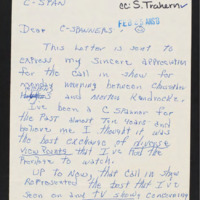 C-SPAN
cc: S. Trahern
FEB 1993
Dear C-SPANNERS,
This letter is sent to
express my sincere appreciation
for the call in show for
monday morning between Christopher
and Morton Kondracke.
I've been a C Spanner for
the past almost ten years and
believe me I thought it was
the best exchange of diverse
view points that I've had the
pleasure to watch.
Up to now, that call in show
represented the best that I've
seen on any TV show concerning